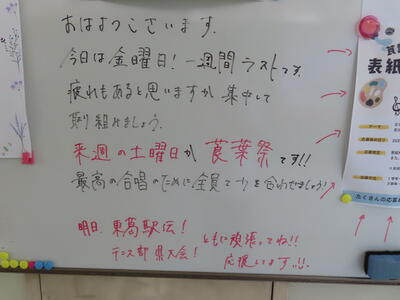 おはようございます.
今日は金曜日! 一週間ラストです.
疲れもあると思いますが 集中して
取り組みましょう.
来週の土曜日が 莨葉祭です!!
最高の合唱のために全員で力を合わせましょう!
明日. 東葛駅伝!
テニス部 県大会!
ともに頑張ってね!!
応援してます!!!
表紙
たくさんの応募